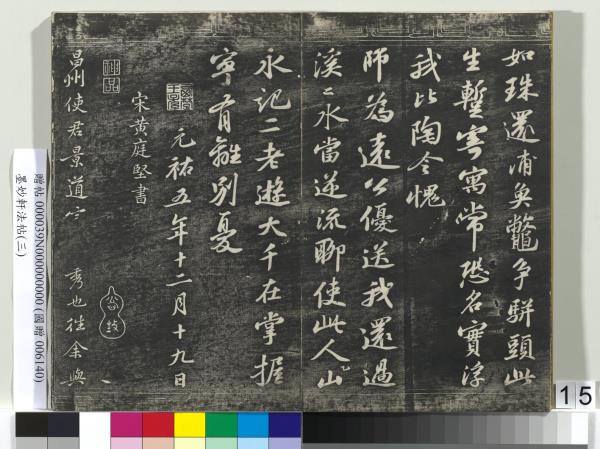 如珠還浦魚鼈爭駢頭此
生蹔寄寓常恐名實浮
我比陶令愧
師為遠公優送我還過
溪〻水當逆流聊使此人山
永記二老遊大千在掌握
寧有離別憂
元祐五年十二月十九日
宋黃庭堅書
昌州使君景道宗 秀也往余與
墨妙軒法帖(三)
贈帖 000039N000000000 (國贈 006140)
15